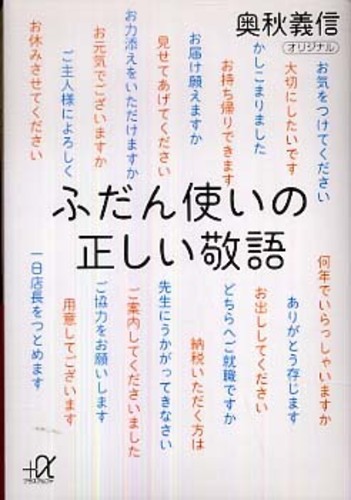 奥秋義信
オリジナル
お気をつけてください
大切にしたいです
かしこまりました
お持ち帰りできます
お届け願えますか
見せてあげてください
お力添えをいただけますか
お元気でございますか
ご主人様によろしく
お休みさせてください
ふだん使いの
正しい敬語
何年でいらっしゃいますか
ありがとう存じます
お出ししてください
どちらへご就職ですか
納税いただく方は
先生にうかがってきなさい
ご案内してくださいました
ご協力をお願いします
用意してございます
一日店長をつとめます
+α
プラスアルファ